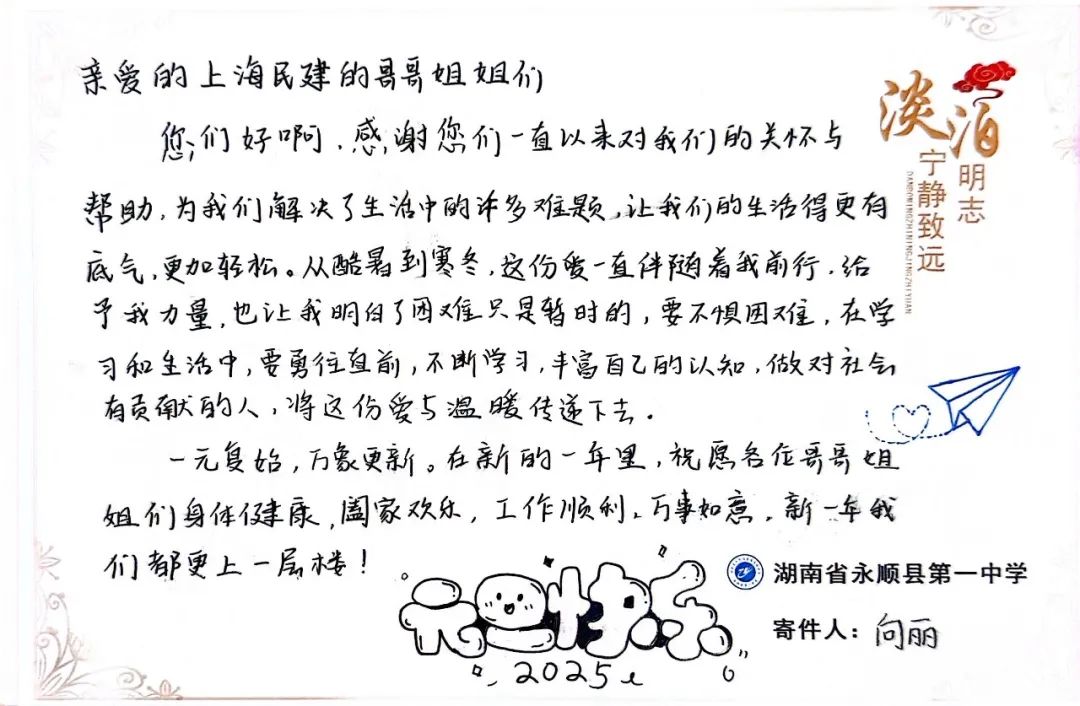 亲爱的上海民建的哥哥姐姐们
您们好啊.感谢您们一直以来对我们的关怀与
帮助,为我们解决了生活中的许多难题,让我们的生活得更有
底气,更加轻松。从酷暑到寒冬,这份爱一直伴随着我前行.给
予我力量,也让我明白了困难只是暂时的,要不惧困难,在学
习和生活中,要勇往直前,不断学习,丰富自己的认知,做对社会
有贡献的人,将这份爱与温暖传递下去.
一元复始,万象更新。在新的一年里,祝愿各位哥哥姐
姐们身体健康,阖家欢乐,工作顺利,万事如意.新一年我
们都更上一层楼!
淡泊
明志
宁静致远
DANBOMINGZHININGJINGZHIYUAN
元旦快乐
2025
湖南省永顺县第一中学
寄件人:向丽